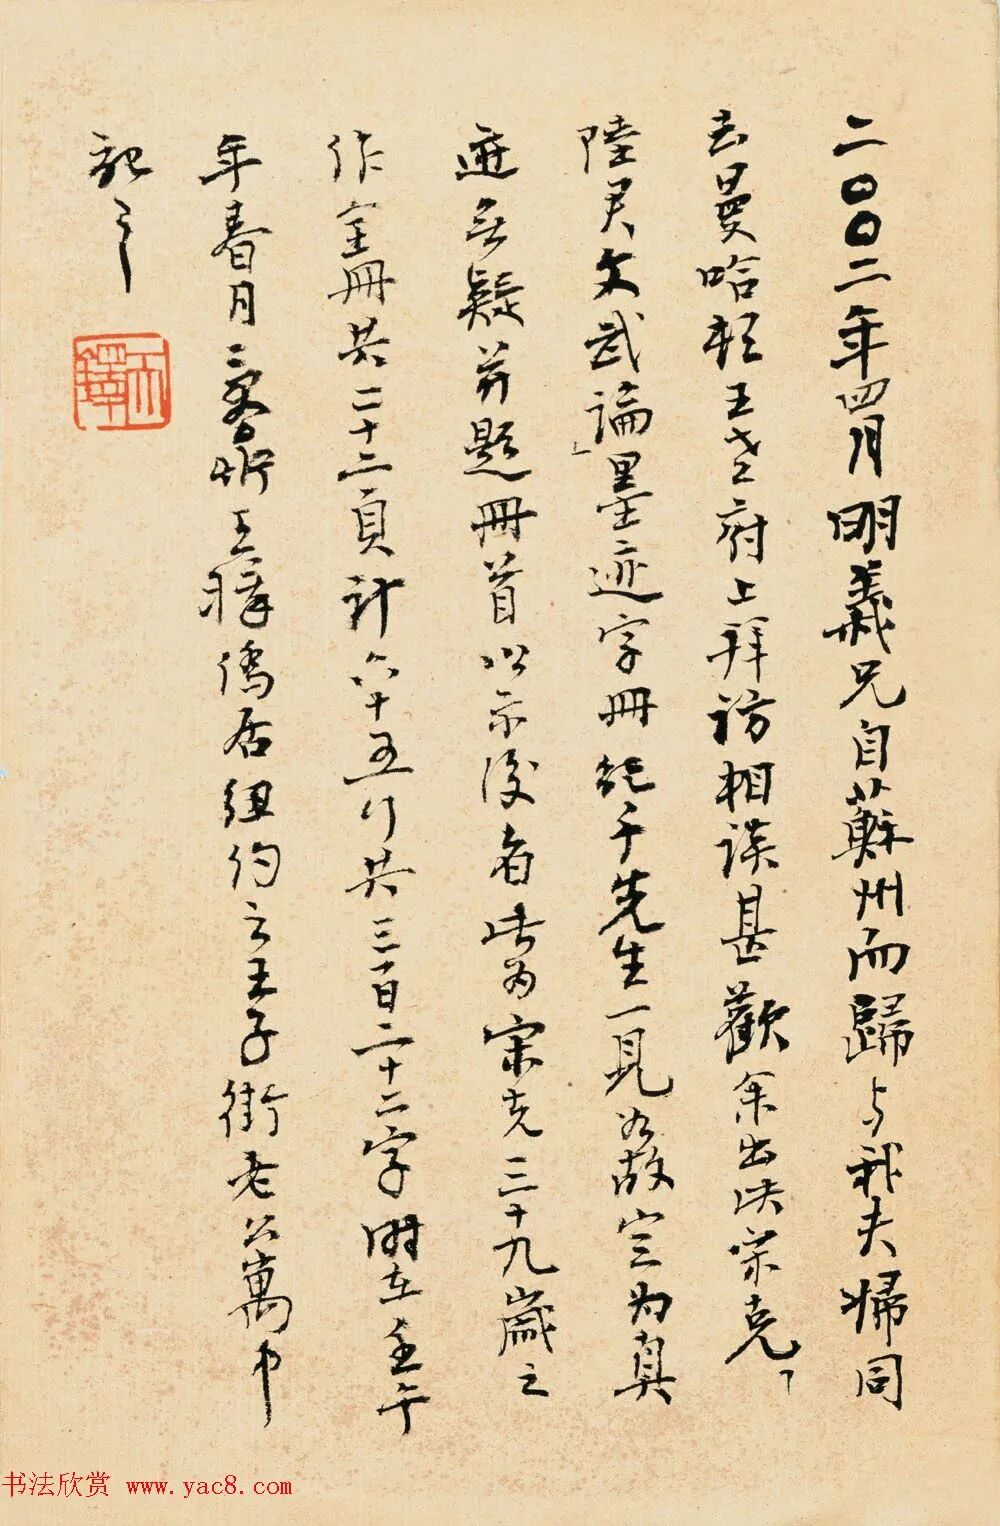 二〇〇二年四月明義兄自蘇州而歸与我夫婦同
去曼哈頓王老府上拜訪相談甚歡余出宋克「
陸君文武論」墨迹字冊纪千先生一見如故定为真
迹无疑并題冊首以示後者此为宋克三十九歲之
作全冊共二十二頁計六十五行共三百二十二字時在壬午
年春月僑居紐約之王子街老公寓中
記之
书法欣赏 www.yac8.com